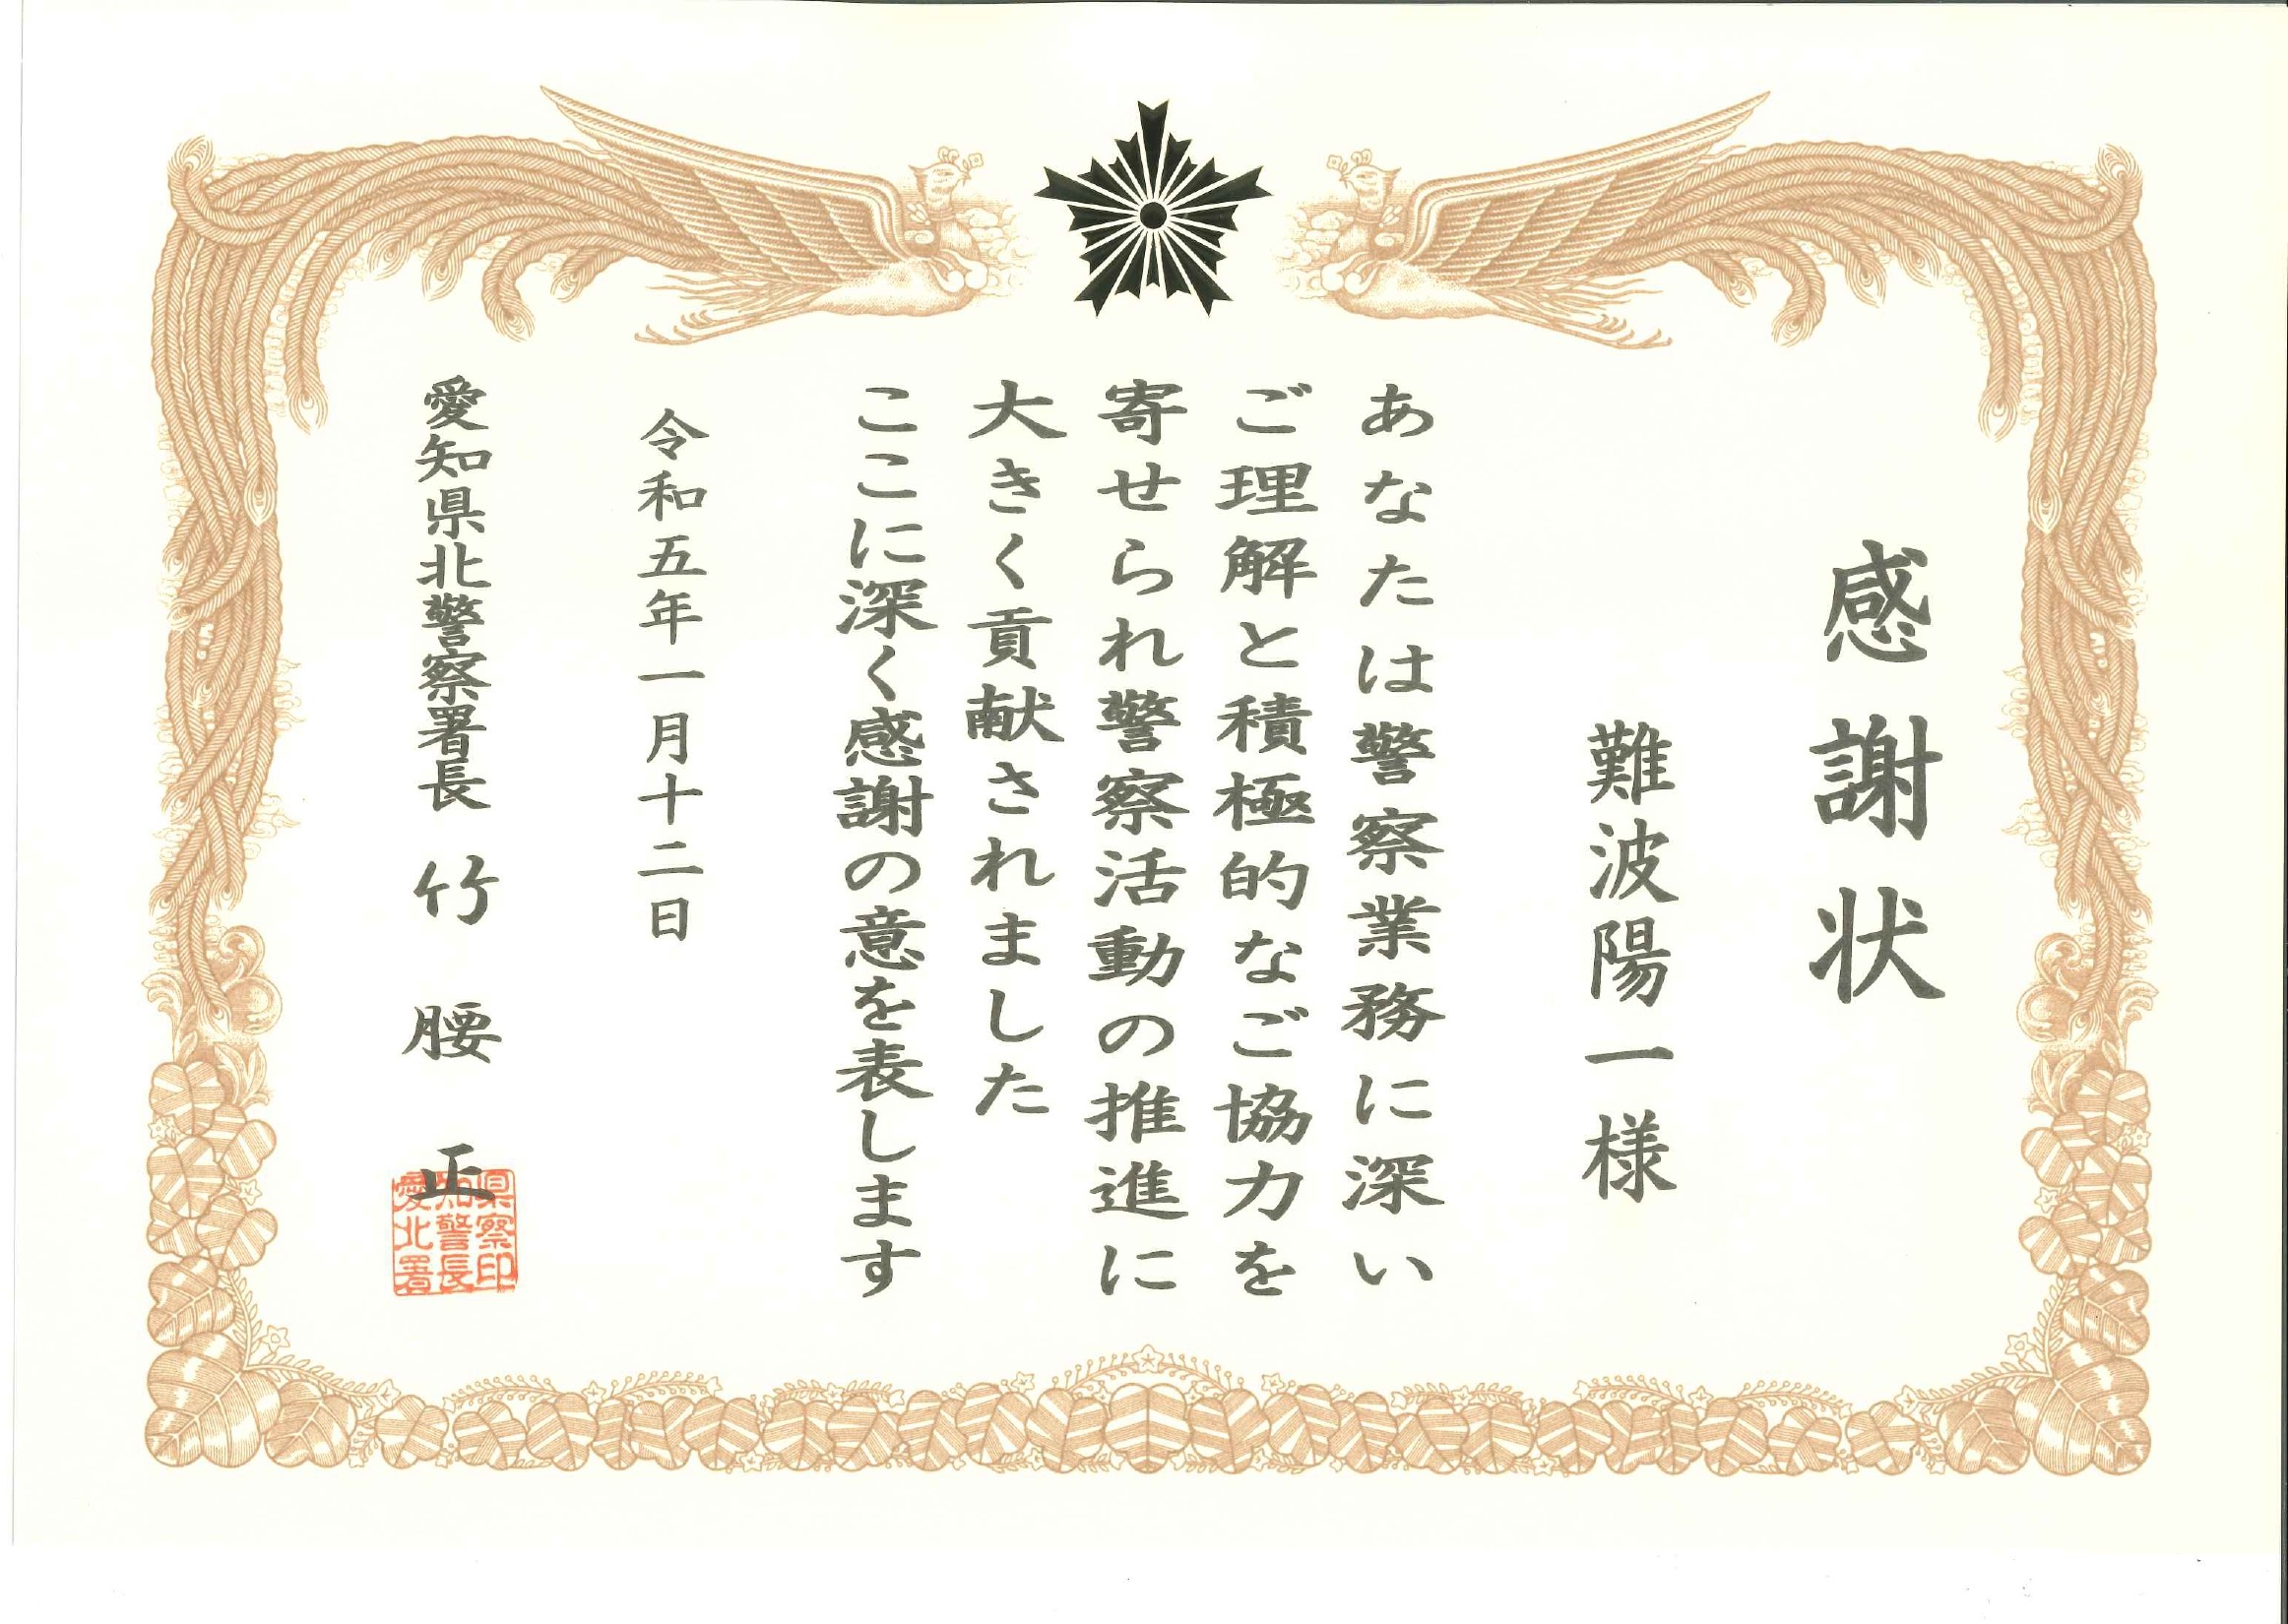 感謝状
難波陽一様
あなたは警察業務に深い
ご理解と積極的なご協力を
寄せられ警察活動の推進に
大きく貢献されました
ここに深く感謝の意を表します
令和五年一月十二日
愛知県北警察署長 竹腰 正
愛知県
北警察
署長印